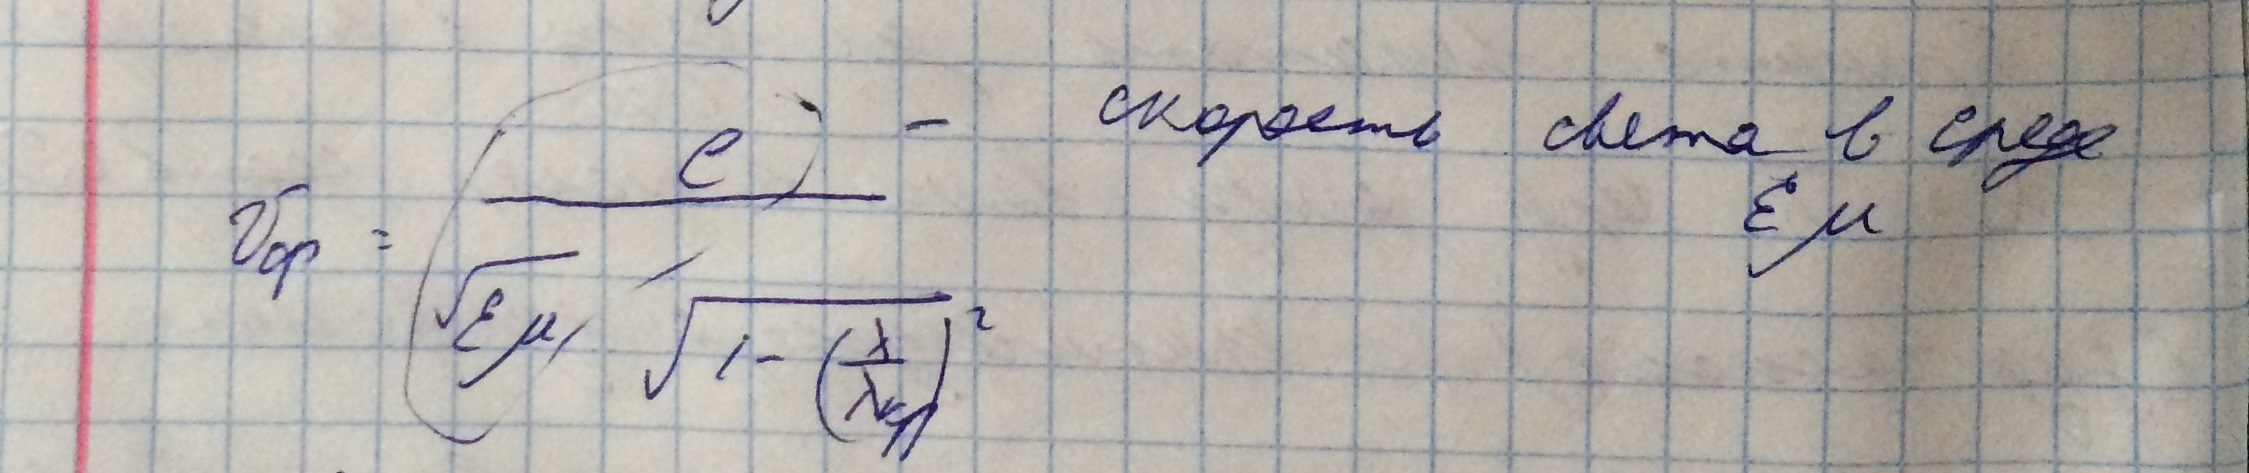 vф = c / (√εμ √(1 - (λ/λкр)²)) - скорость света в среде
εμ